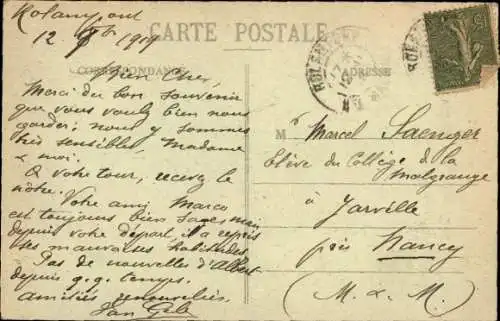 Rolampont
12 9bre 1919
CARTE POSTALE
CORRESPONDANCE
ADRESSE
Bien Cher
Merci du bon souvenir
que vous voulez bien nous
garder; nous y sommes
très sensibles Madame
& moi.
A votre tour, recevez le
nôtre.
Votre ami Marco
est toujours bien sage, mais
depuis votre départ, il a repris
ses mauvaises habitudes.
Pas de nouvelles d'Albert
depuis q.q. temps.
amitiés renouvelées.
M Marcel Saenger
Elève du Collège de la
Malgrange
à Jarville
près Nancy
(M. & M.)